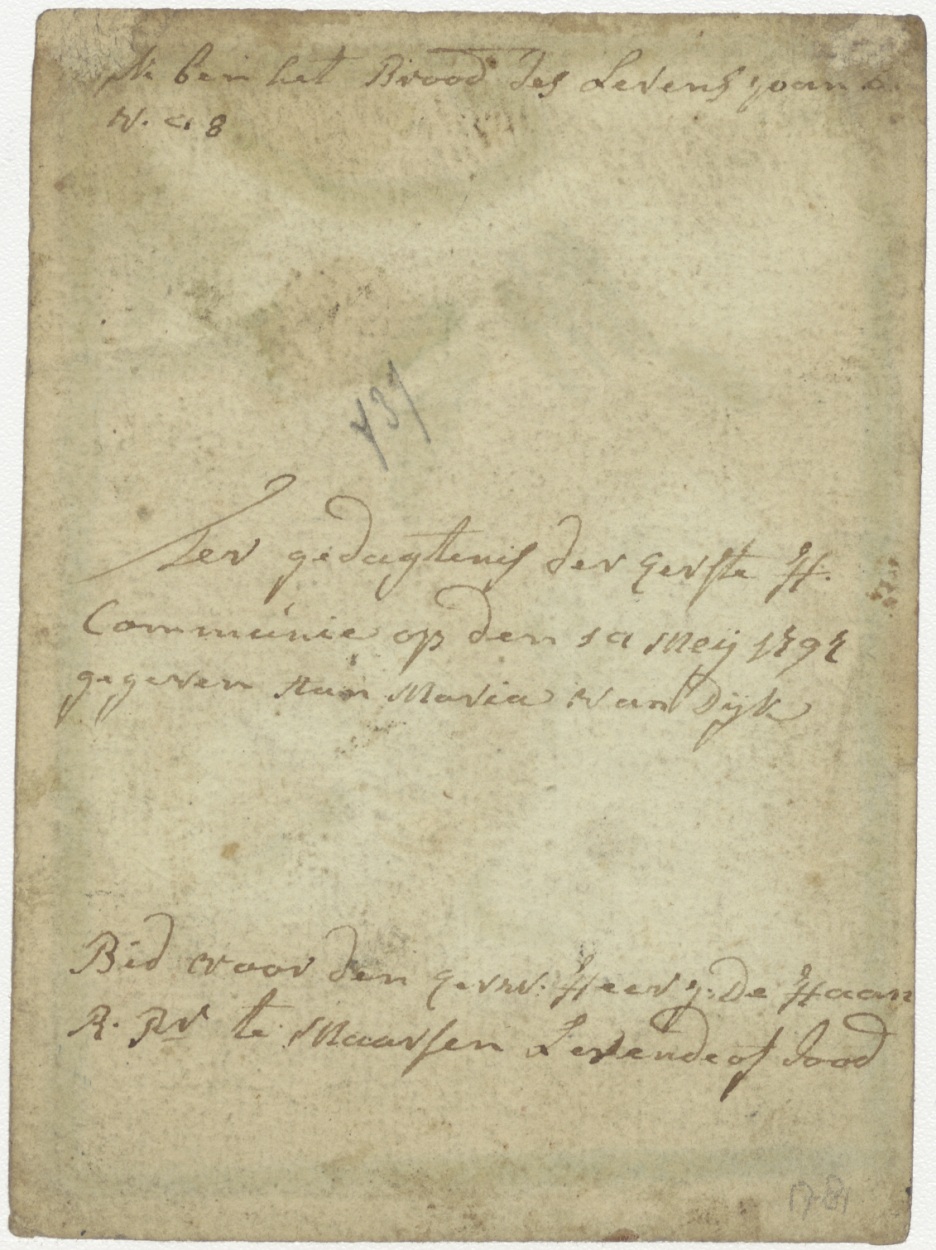 Ik ben het Brood des Levens Joan 6
V. 48
739
Ter gedagtenis der Eerste H.
Communie op den 10 Meij 1797
gegeven Aan Maria van Dijk
Bid voor den Eerw. Heer J. De Haan
R. Pr te Maarsen Levende of dood